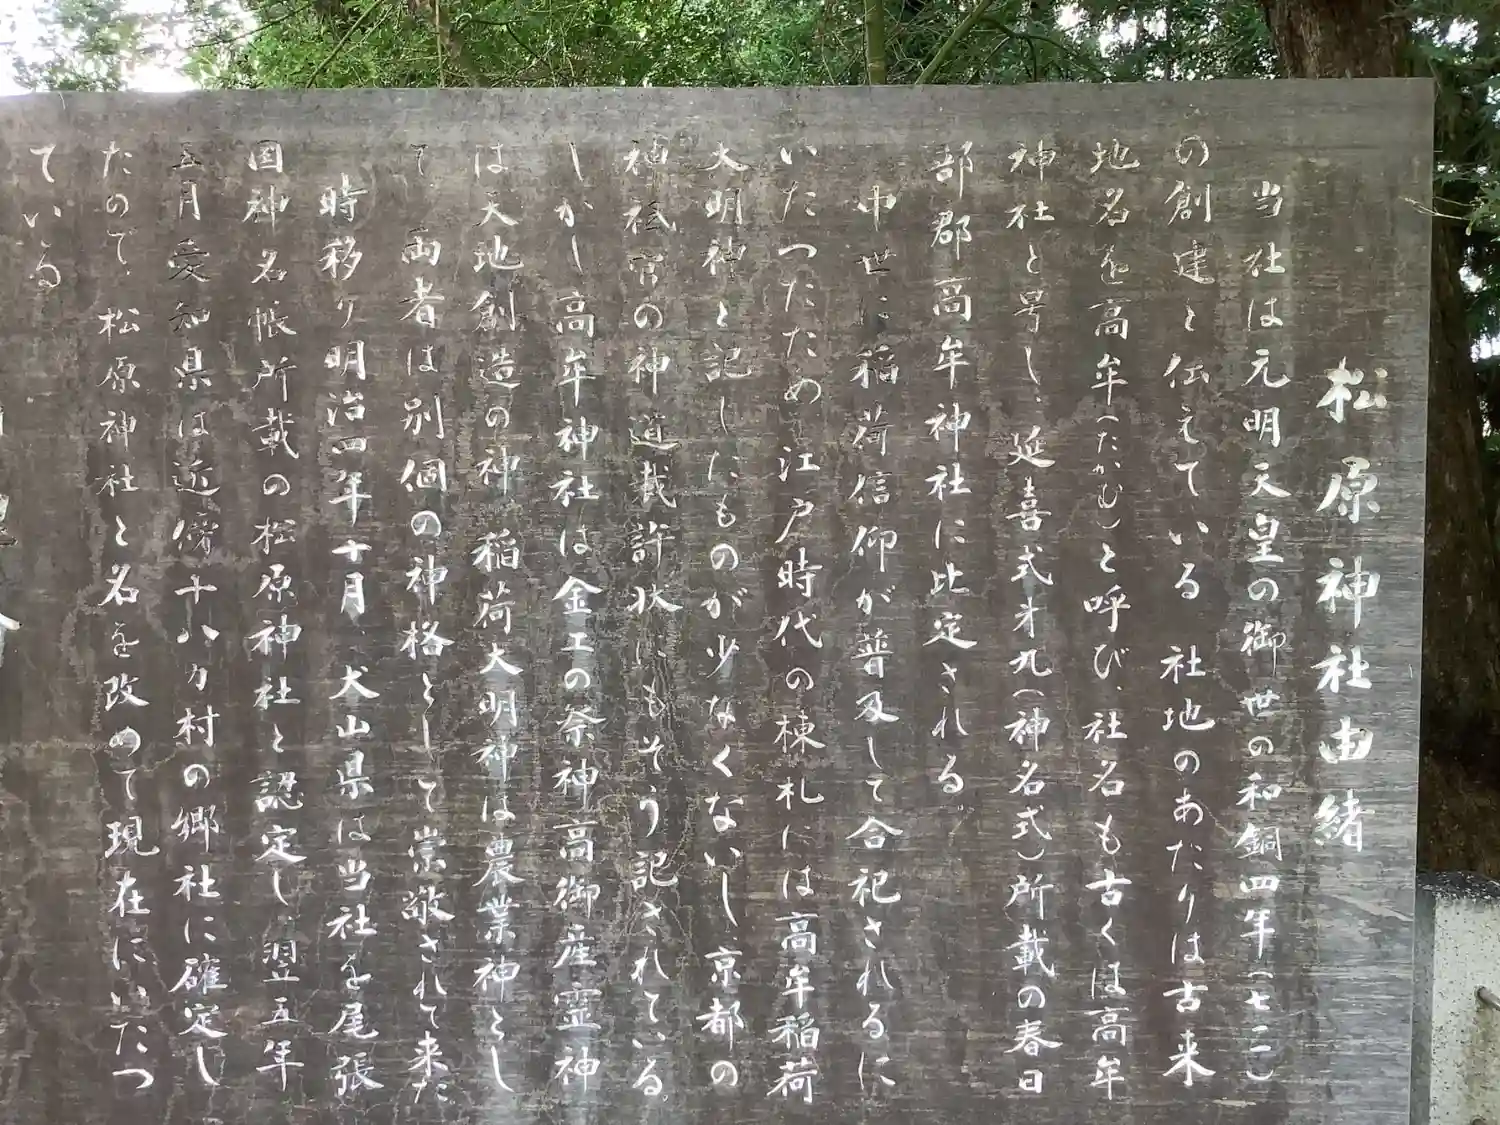 松原神社由緒
当社は元明天皇の御世の和銅四年(七一一)
の創建と伝えている 社地のあたりは古来
地名を高牟(たかむ)と呼び、社名も古くは高牟
神社と号し、延喜式才九(神名式)所載の春日
部郡高牟神社に比定される
中世に稲荷信仰が普及して合祀されるに
いたつたため 江戸時代の棟札には高牟稲荷
大明神と記しにものが少なくないし京都の
神祗官の神道裁許状にもそう記されている
しかし高牟神社は金工の祭神高御産霊神
は天地創造の神 稲荷大明神は農業神とし
て、両者は別個の神格として崇敬されて来た
時移り明治四年十月、犬山県は当社を尾張
国神名帳所載の松原神社と認定し、翌五年
五月愛知県は近傍十八カ村の郷社に確定し
たので、松原神社と名を改めて現在にいたつ
ている